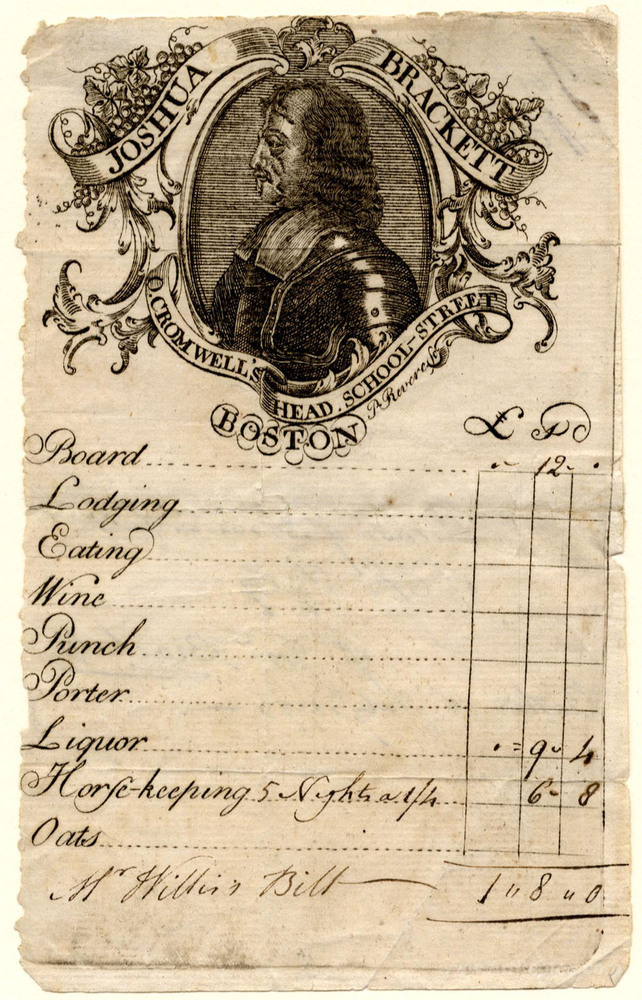 JOSHUA BRACKETT
O. CROMWELL'S HEAD. SCHOOL-STREET
P. Revere Sc
BOSTON
£ S D
Board 12
Lodging
Eating
Wine
Punch
Porter
Liquor 9 4
Horse-keeping 5 Nights a 1/4 6 8
Oats
Mr Willis's Bill 1 " 8 " 0